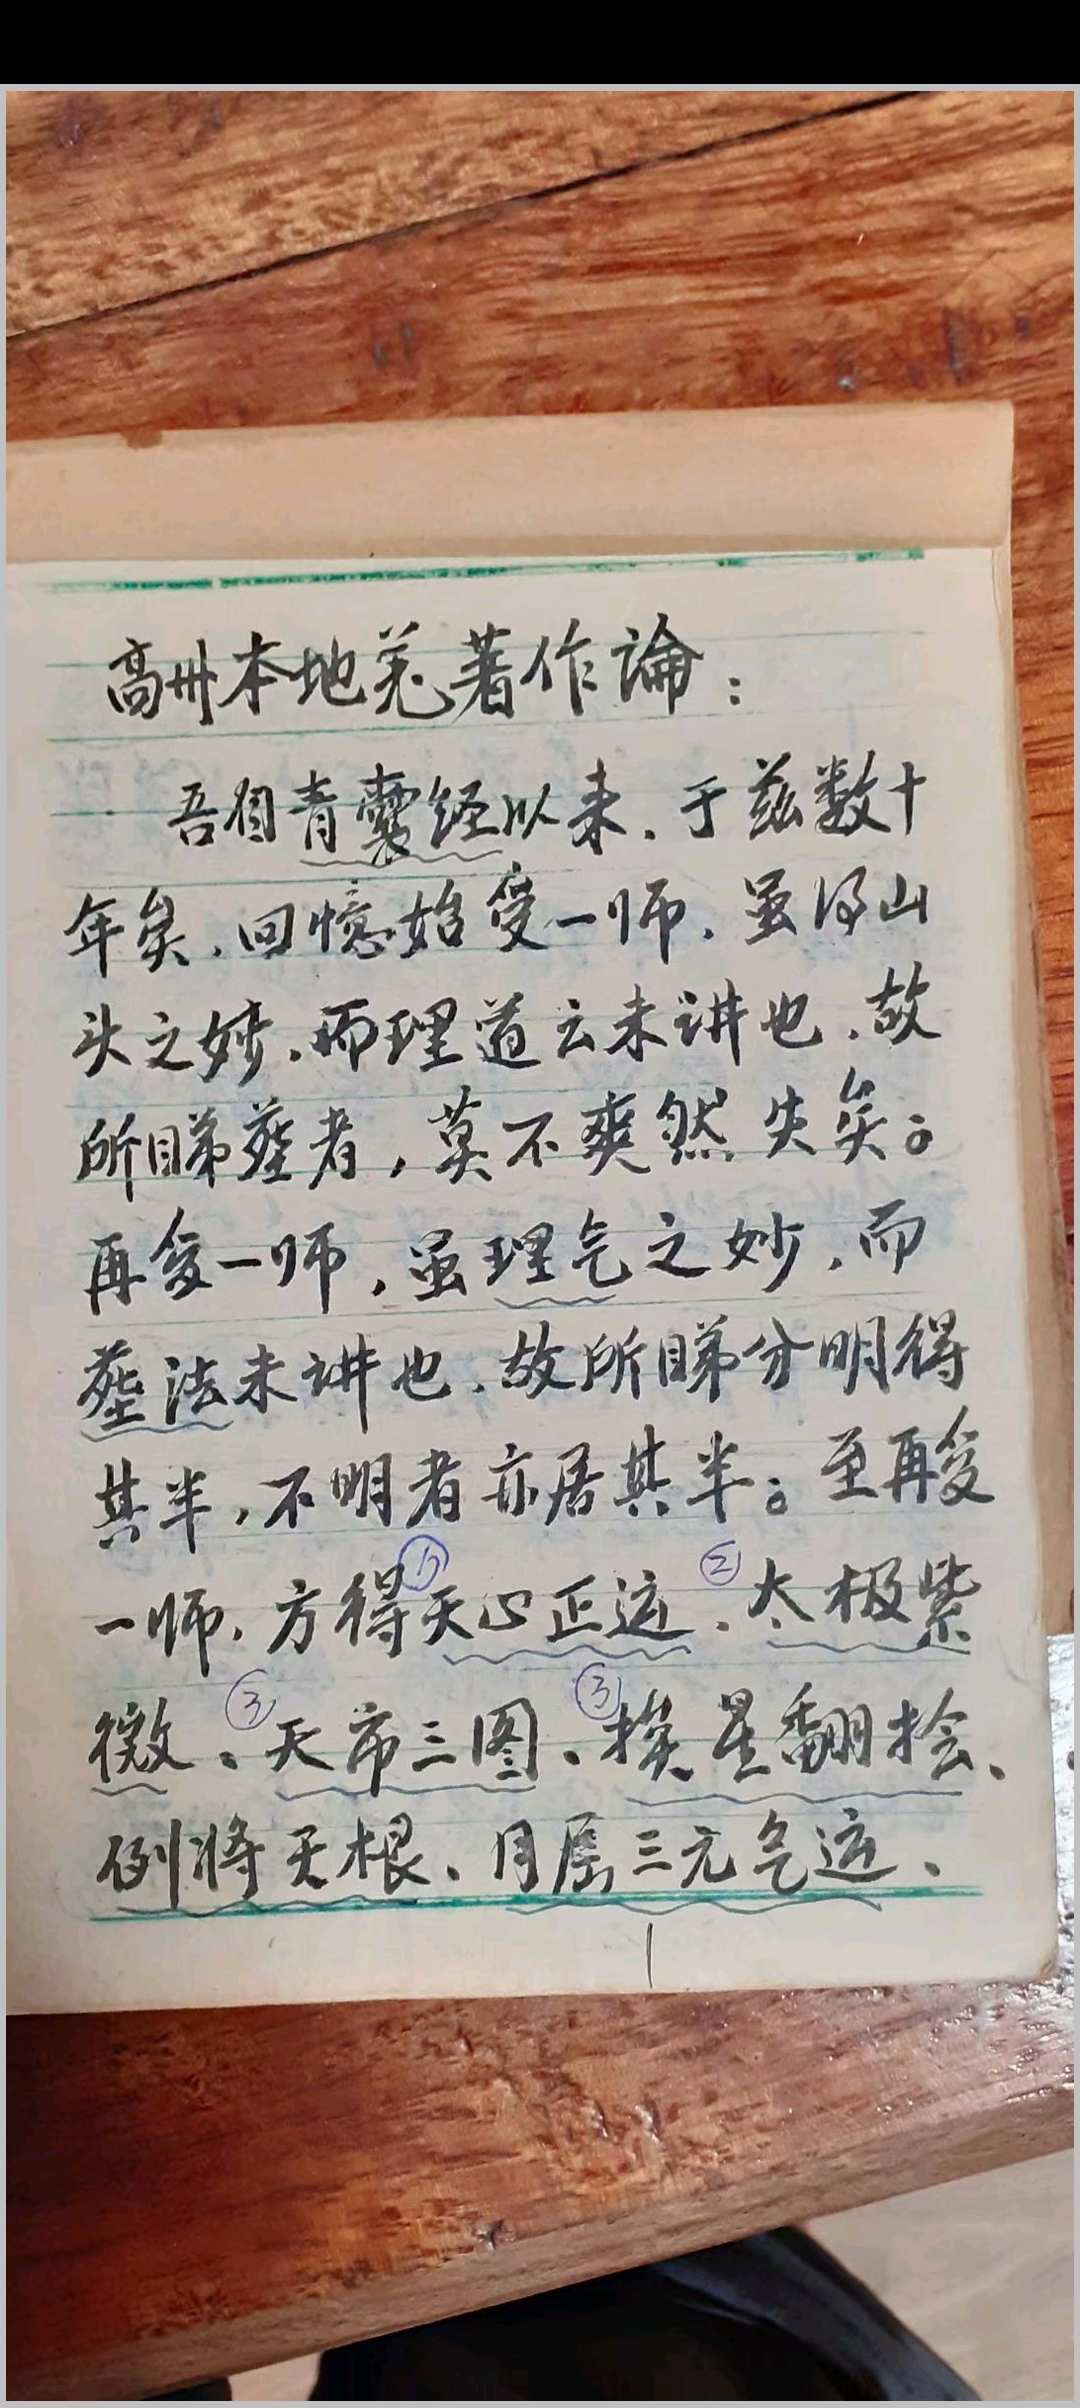 高州本地羌著作論：
吾自青囊经以来、于兹数十
年矣、回憶始受一师、虽得山
头之妙、而理道云未讲也、故
所睇塟者，莫不爽然失矣。
再受一师，虽理气之妙，而
塟法未讲也、故所睇分明得
其半，不明者亦居其半。至再受
①②
一师、方得天心正运、太极紫
③③
微、天市三图、挨星翻
例将天根、月屈三元气运、
1